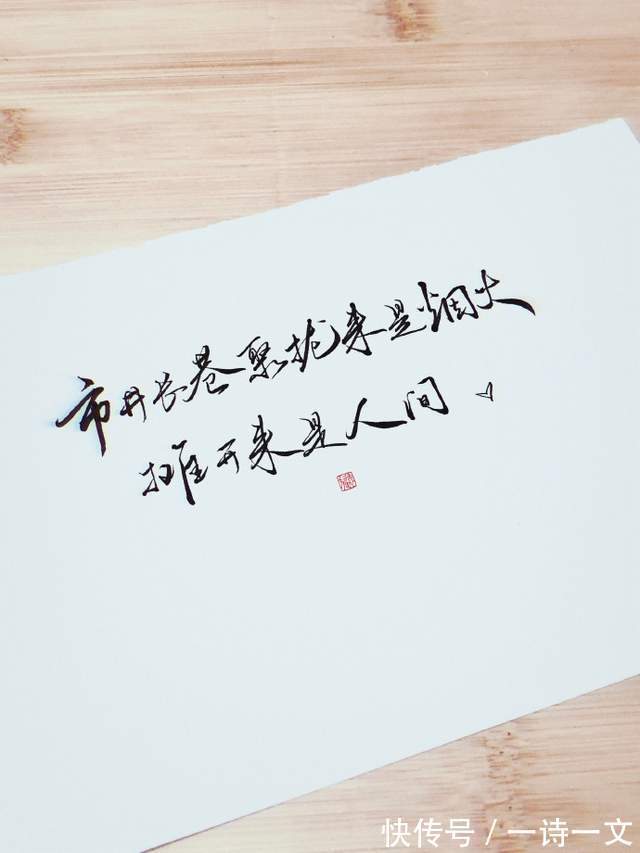 市井长巷聚拢来是烟火
摊开来是人间
快传号/一诗一文